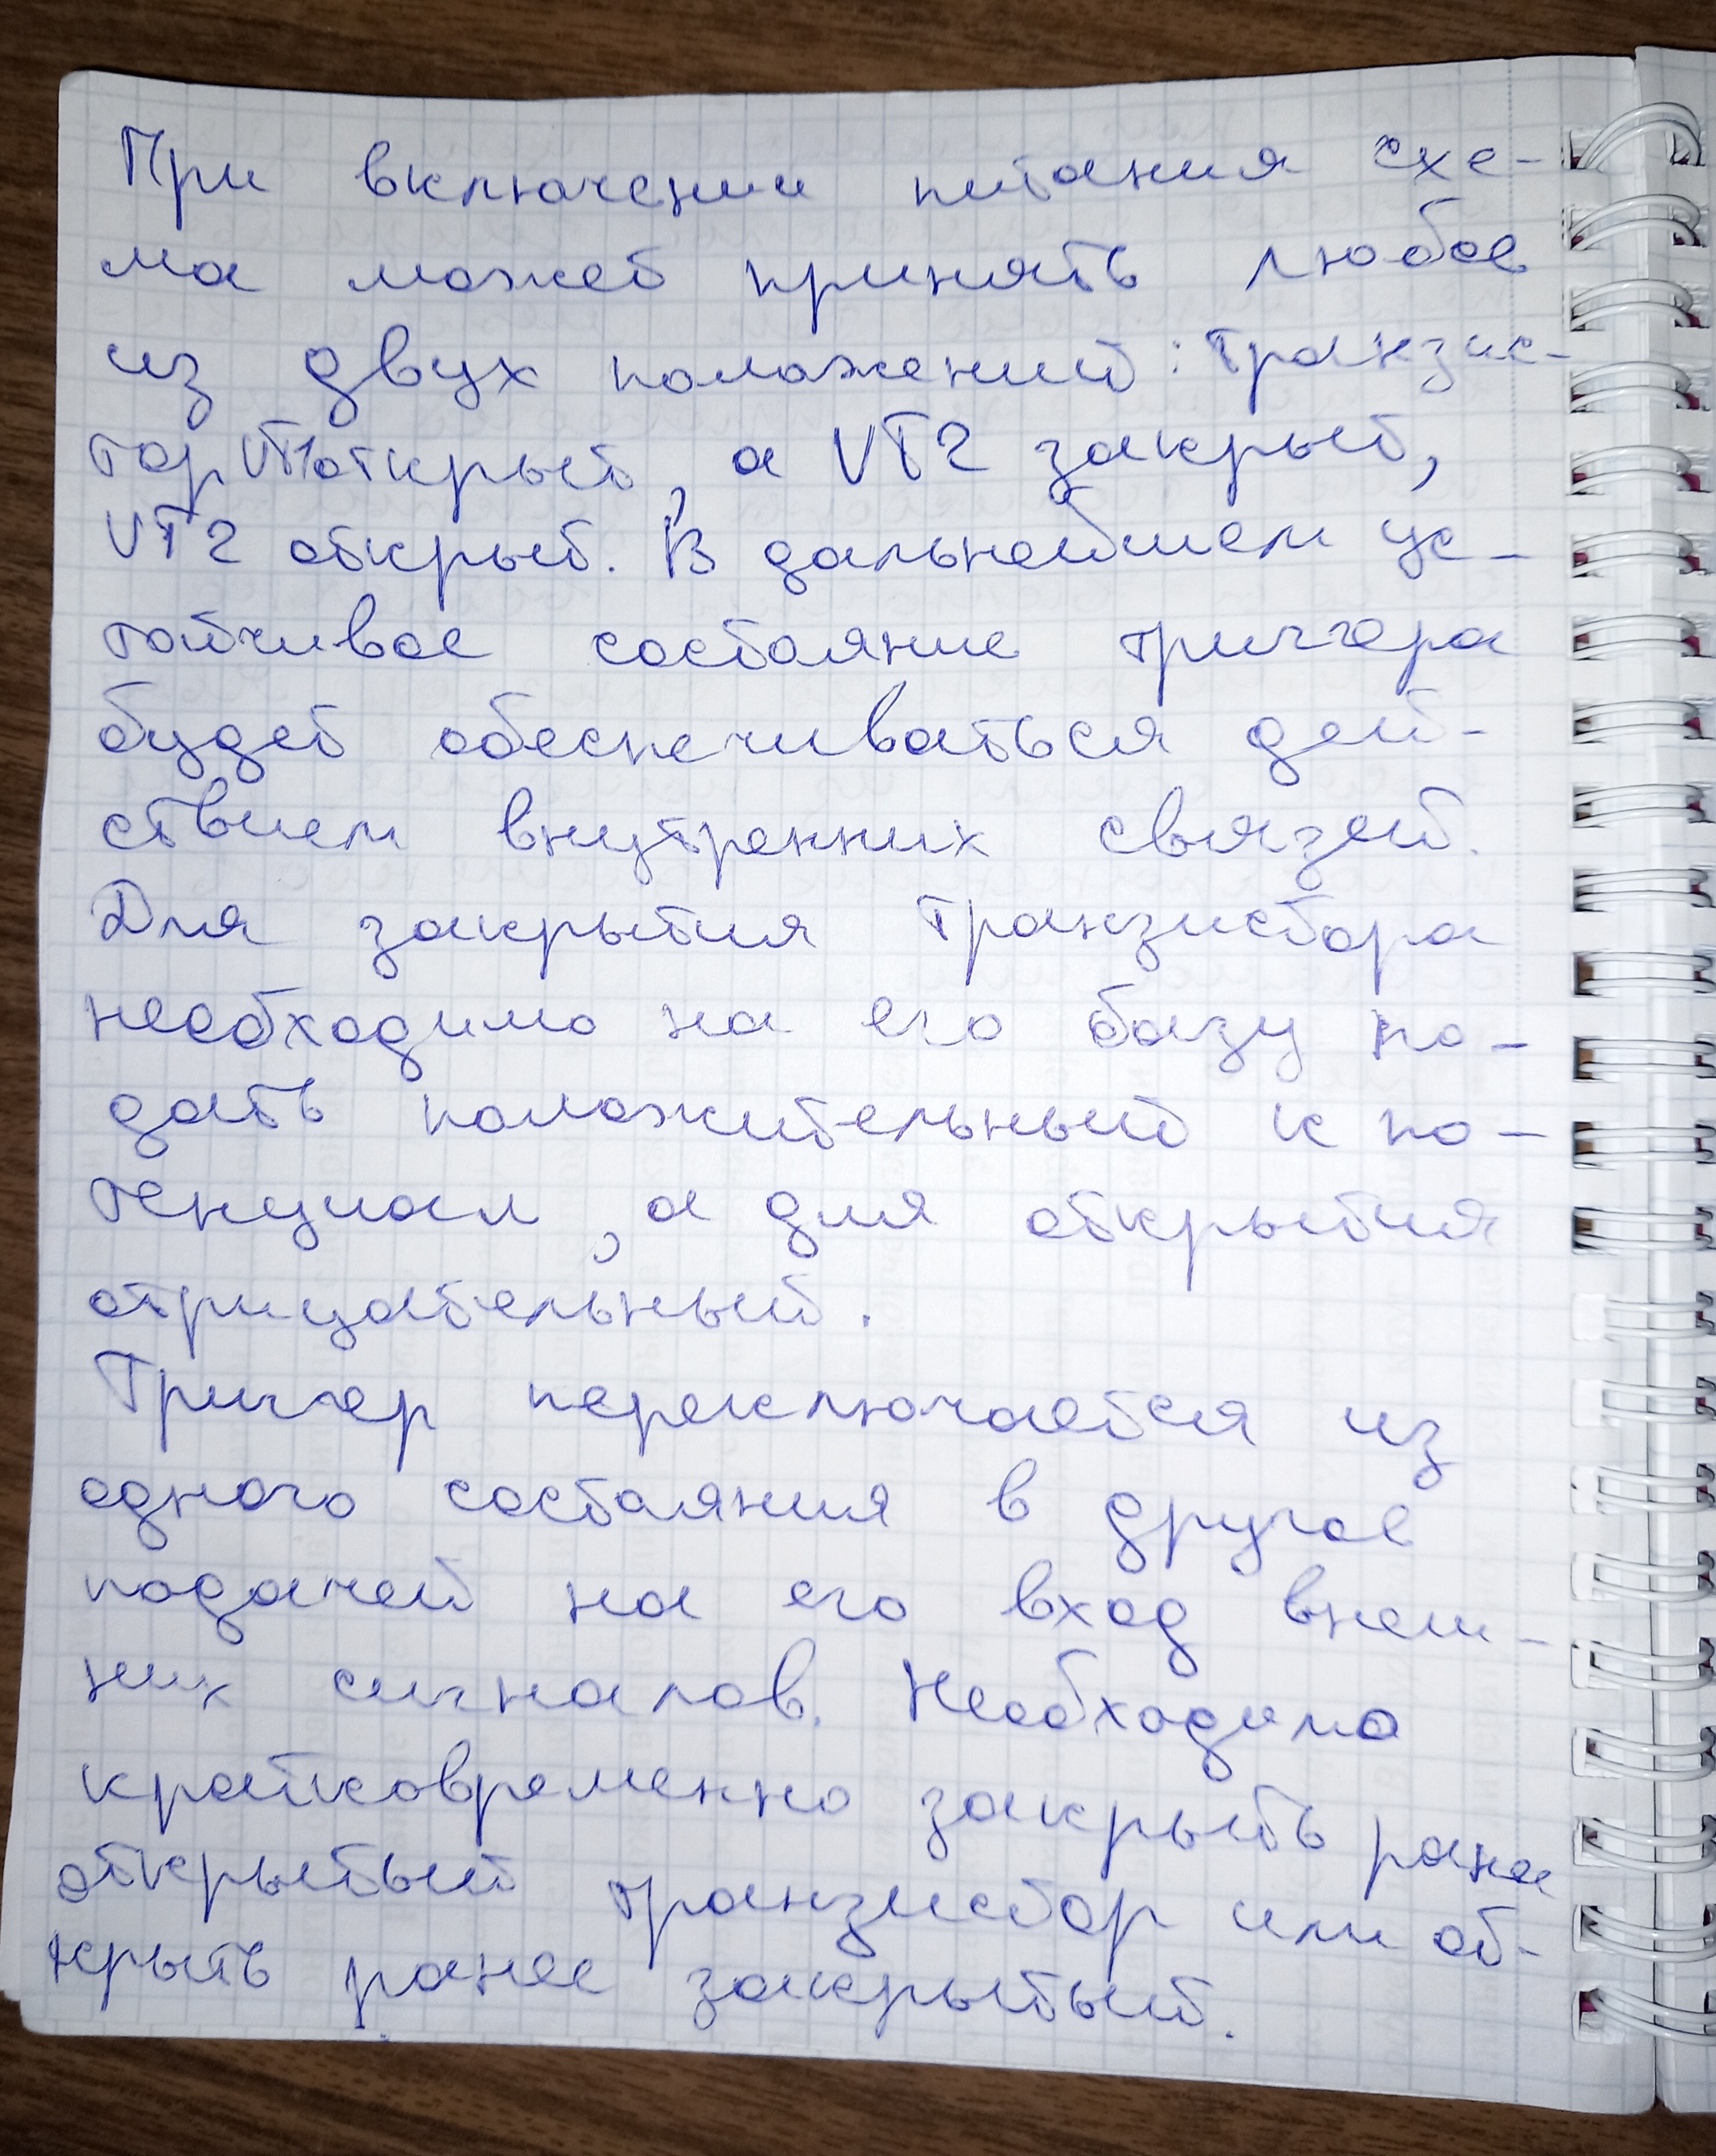 При включении питания схе-
ма может принять любое
из двух положений: транзис-
тор VT1 открыт, а VT2 закрыт,
VT2 открыт. В дальнейшем ус-
тойчивое состояние триггера
будет обеспечиваться дей-
ствием внутренних связей.
Для закрытия транзистора
необходимо на его базу по-
дать положительный к по-
тенциал, а для открытия
отрицательный.
Триггер переключается из
одного состояния в другое
подачей на его вход внеш-
них сигналов. Необходимо
кратковременно закрыть ранее
открытый транзистор или от-
крыть ранее закрытый.